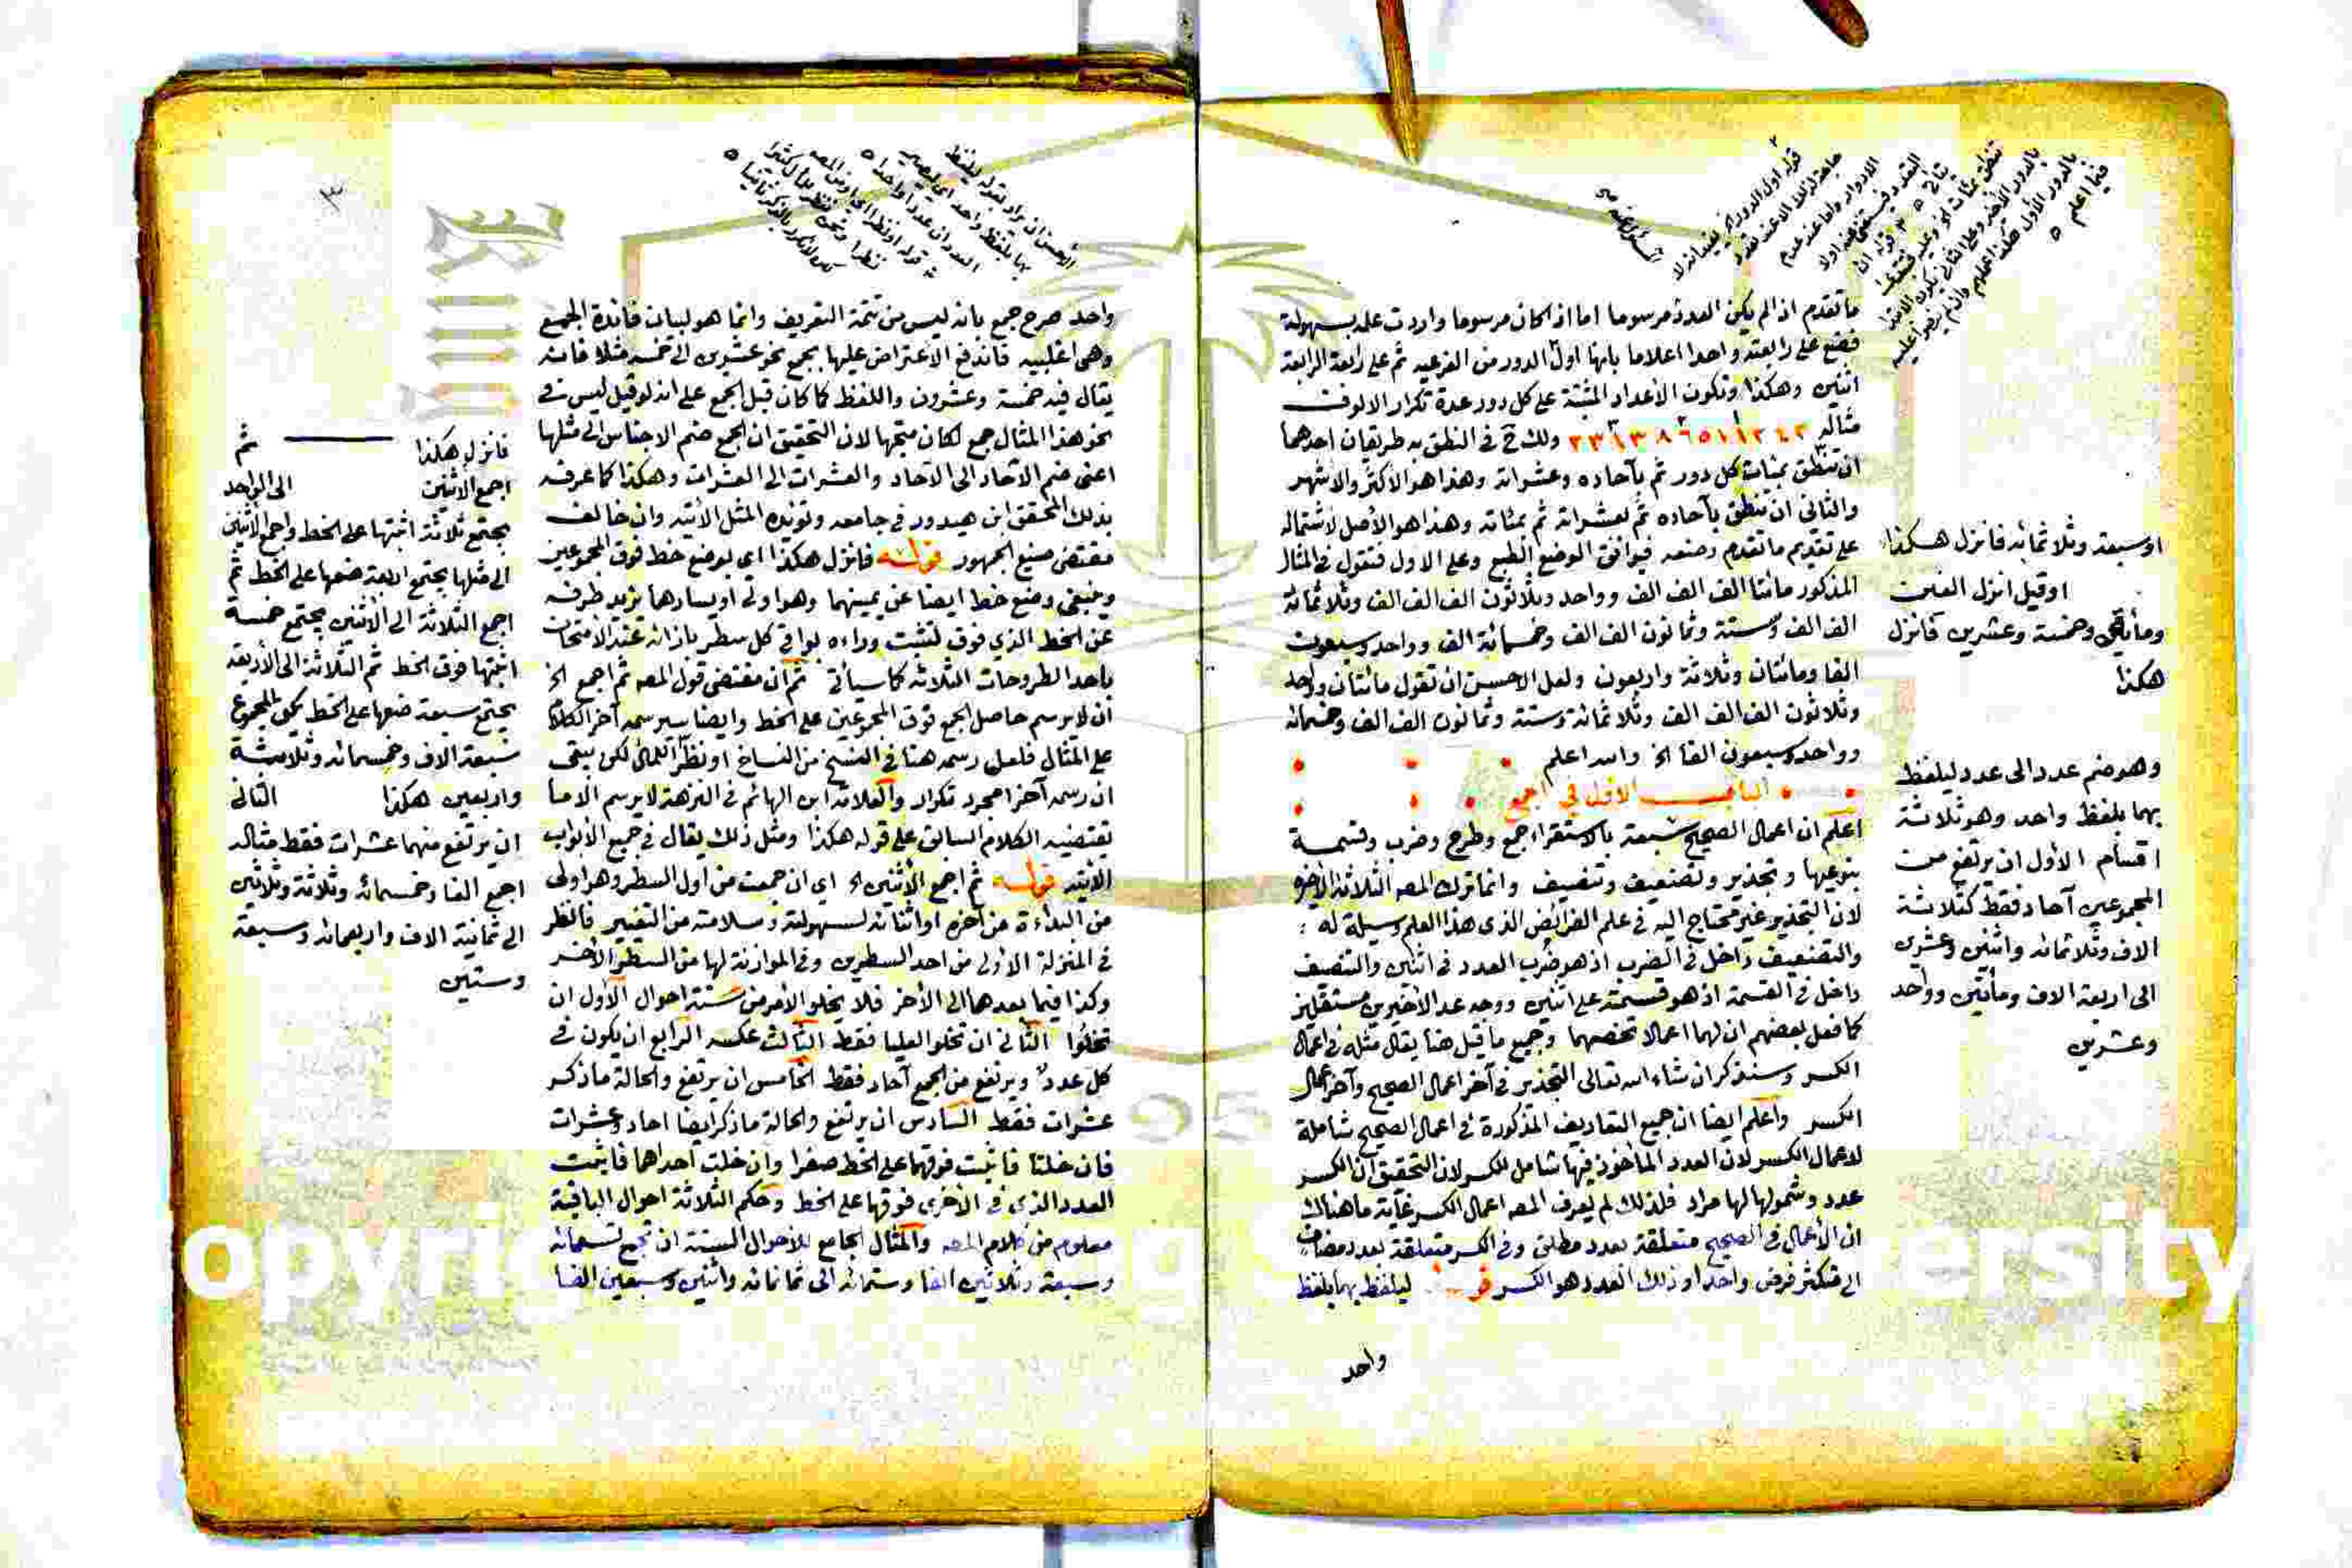 ما تقدم اذا لم يكن العدد مرسوما اما اذا كان مرسوما واردت علمه بسهولة
فضع على رابعته واحدا اعلاما بانها اول الدور من الفرعيه ثم على رابعة الرابعة
اثنين وهكذا وتكون الأعداد المثبتة على كل دور عدة تكرار الالوف
مثاله ولك في النطق به طريقان احدهما
ان تنطق بمئات كل دور ثم بآحاده وعشراته وهذا هو الاكثر والاشهر
والثاني ان تنطق بآحاده ثم بعشراته ثم بمئاته وهذا هو الأصل لاشتماله
على تقديم ما تقدم وضعه فيوافق الوضع الطبع وعلى الاول فتقول في المثال
المذكور مائتا الف الف الف وواحد وثلاثون الف الف الف وثلاثمائة
الف الف وستة وثمانون الف الف وخمسمائة الف وواحد وسبعون
الفا ومائتان وثلاثة واربعون ولعل الاحسن ان تقول مائتان وواحد
وثلاثون الف الف الف وثلاثمائة وستة وثمانون الف الف وخمسمائة
وواحد وسبعون الفا الخ والله اعلم
الباب الاول في الجمع
اعلم ان اعمال الصحيح سبعة بالاستقراء جمع وطرح وضرب وقسمة
بنوعيها وتجذير وتضعيف وتنصيف وانما ترك المصه الثلاثة الأخيرة
لان التجذير غير محتاج اليه في علم الفرائض الذي هذا العلم وسيلة له
والتضعيف داخل في الضرب اذ هو ضرب العدد في اثنين والتنصيف
داخل في القسمة اذ هو قسمته على اثنين ووجه عد الأخيرين مستقلين
كما فعل بعضهم ان لهما اعمالا تخصهما وجميع ما قيل هنا يقال مثله في اعمال
الكسر وسنذكر ان شاء الله تعالى التجذير في آخر اعمال الصحيح وآخر اعمال
الكسر واعلم ايضا ان جميع التعاريف المذكورة في اعمال الصحيح شاملة
لاعمال الكسر لان العدد المأخوذ فيها شامل للكسر لان التحقيق ان الكسر
عدد وشمولها لها مراد فلذلك لم يعرف المصه اعمال الكسر غاية ما هنالك
ان الأعمال في الصحيح متعلقة بعدد مطلق وفي الكسر متعلقة بعدد مضاف
الى متكثر فرض واحدا وذلك العدد هو الكسر قوله ليلفظ بهما بلفظ
واحد
اوسبعة وثلاثمائه فانزل هكذا
اوقيل انزل الفين
ومأتين وخمسة وعشرين فانزل
هكذا
وهو ضم عدد الى عدد ليلفظ
بهما بلفظ واحد وهو ثلاثة
اقسام الأول ان يرتفع من
المجموعين آحاد فقط كثلاثة
الاف وثلاثمائه واثنين وعشرين
الى اربعة الاف ومأتين وواحد
وعشرين
واحد صرح جمع بانه ليس من تتمة التعريف وانما هو لبيان فائدة الجمع
وهي اغلبيه فاندفع الاعتراض عليها بجمع نحو عشرين الى خمسه مثلا فانه
يقال فيه خمسة وعشرون واللفظ كما كان قبل الجمع على انه لو قيل ليس في
نحو هذا المثال جمع لكان متجها لان التحقيق ان الجمع ضم الاجناس الى مثلها
اعني ضم الآحاد الى الآحاد والعشرات الى العشرات وهكذا كما عرفه
بذلك المحقق ابن هيدور في جامعه وتؤيده المثل الأتيه وان خالف
مقتضى صنيع الجمهور قوله فانزل هكذا اي بوضع خط فوق المجموعين
وينبغي وضع خط ايضا عن يمينهما وهو اولى او يسارهما يزيد طرفه
عن الخط الذي فوق لتثبت وراءه بواقي كل سطر بازائه عند الامتحان
باحد الطروحات الثلاثه كما سيأتي ثم ان مقتضى قول المصه ثم اجمع الخ
ان لا يرسم حاصل الجمع فوق المجموعين على الخط وايضا سيرسمه آخر الكلام
على المثال فلعل رسمه هنا في النسخ من النساخ او نظر للمآل لكن يبقى
ان رسمه آخرا مجرد تكرار والعلامة ابن الهائم في النزهة لا يرسم الا ما
يقتضيه الكلام السابق على قوله هكذا ومثل ذلك يقال في جميع الأبواب
الآتيه قوله ثم اجمع الأثنين الخ اي ان جمعت من اول السطر وهو اولى
من البداءة من آخره او اثنائه لسهولته وسلامته من التغيير فانظر
في المنزلة الأولى من احد السطرين وفي الموازنة لها من السطر الأخر
وكذا فيما بعدهما الى الأخر فلا يخلو الأمر من ستة احوال الأول ان
تخلوا الثاني ان تخلو العليا فقط الثالث عكسه الرابع ان يكون في
كل عدد ويرتفع من الجمع آحاد فقط الخامس ان يرتفع والحالة ما ذكر
عشرات فقط السادس ان يرتفع والحالة ما ذكر ايضا احاد وعشرات
فان خلتا فاثبت فوقهما على الخط صفرا وان خلت احداهما فاثبت
العدد الذي في الأخرى فوقها على الخط وحكم الثلاثة احوال الباقية
معلوم من كلام المصه والمثال الجامع للأحوال الستة ان تجمع تسعمائه
وسبعة وثلاثين الفا وستمائه الى ثمانمائه واثنين وسبعين الفا
فانزل هكذا ثم
اجمع الأثنين الى الواحد
يجتمع ثلاثة اثبتها على الخط واجمع الأثنين
الى مثلها يجتمع اربعة ضعها على الخط ثم
اجمع الثلاثة الى الأثنين يجتمع خمسة
اثبتها فوق الخط ثم الثلاثة الى الأربعة
يجتمع سبعة ضعها على الخط يكن المجموع
سبعة الاف وخمسمائه وثلاثة
واربعين هكذا الثاني
ان يرتفع منهما عشرات فقط مثاله
اجمع الفا وخمسمائه وثلاثة وثلاثين
الى ثمانية الاف واربعمائه وسبعة
وستين